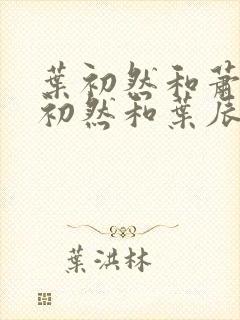 葉初然和蕭
初然和葉辰
葉洪林